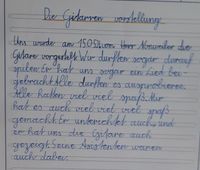 Die Gitarren vorstellung
Uns wurde am 150 von Herr Neuweiler die
Gitare vorgestellt. Wir durften sogar darauf
spielen Er hat uns sogar ein Lied bei
gebracht Alle durften es ausprobieren.
Alle hatten viel viel spaß. Mir
hat es auch viel viel viel spaß
gemacht Er unterrichtet auch und
er hat uns die Gitare auch
gezeigt Seine Assistenten waren
auch dabei.